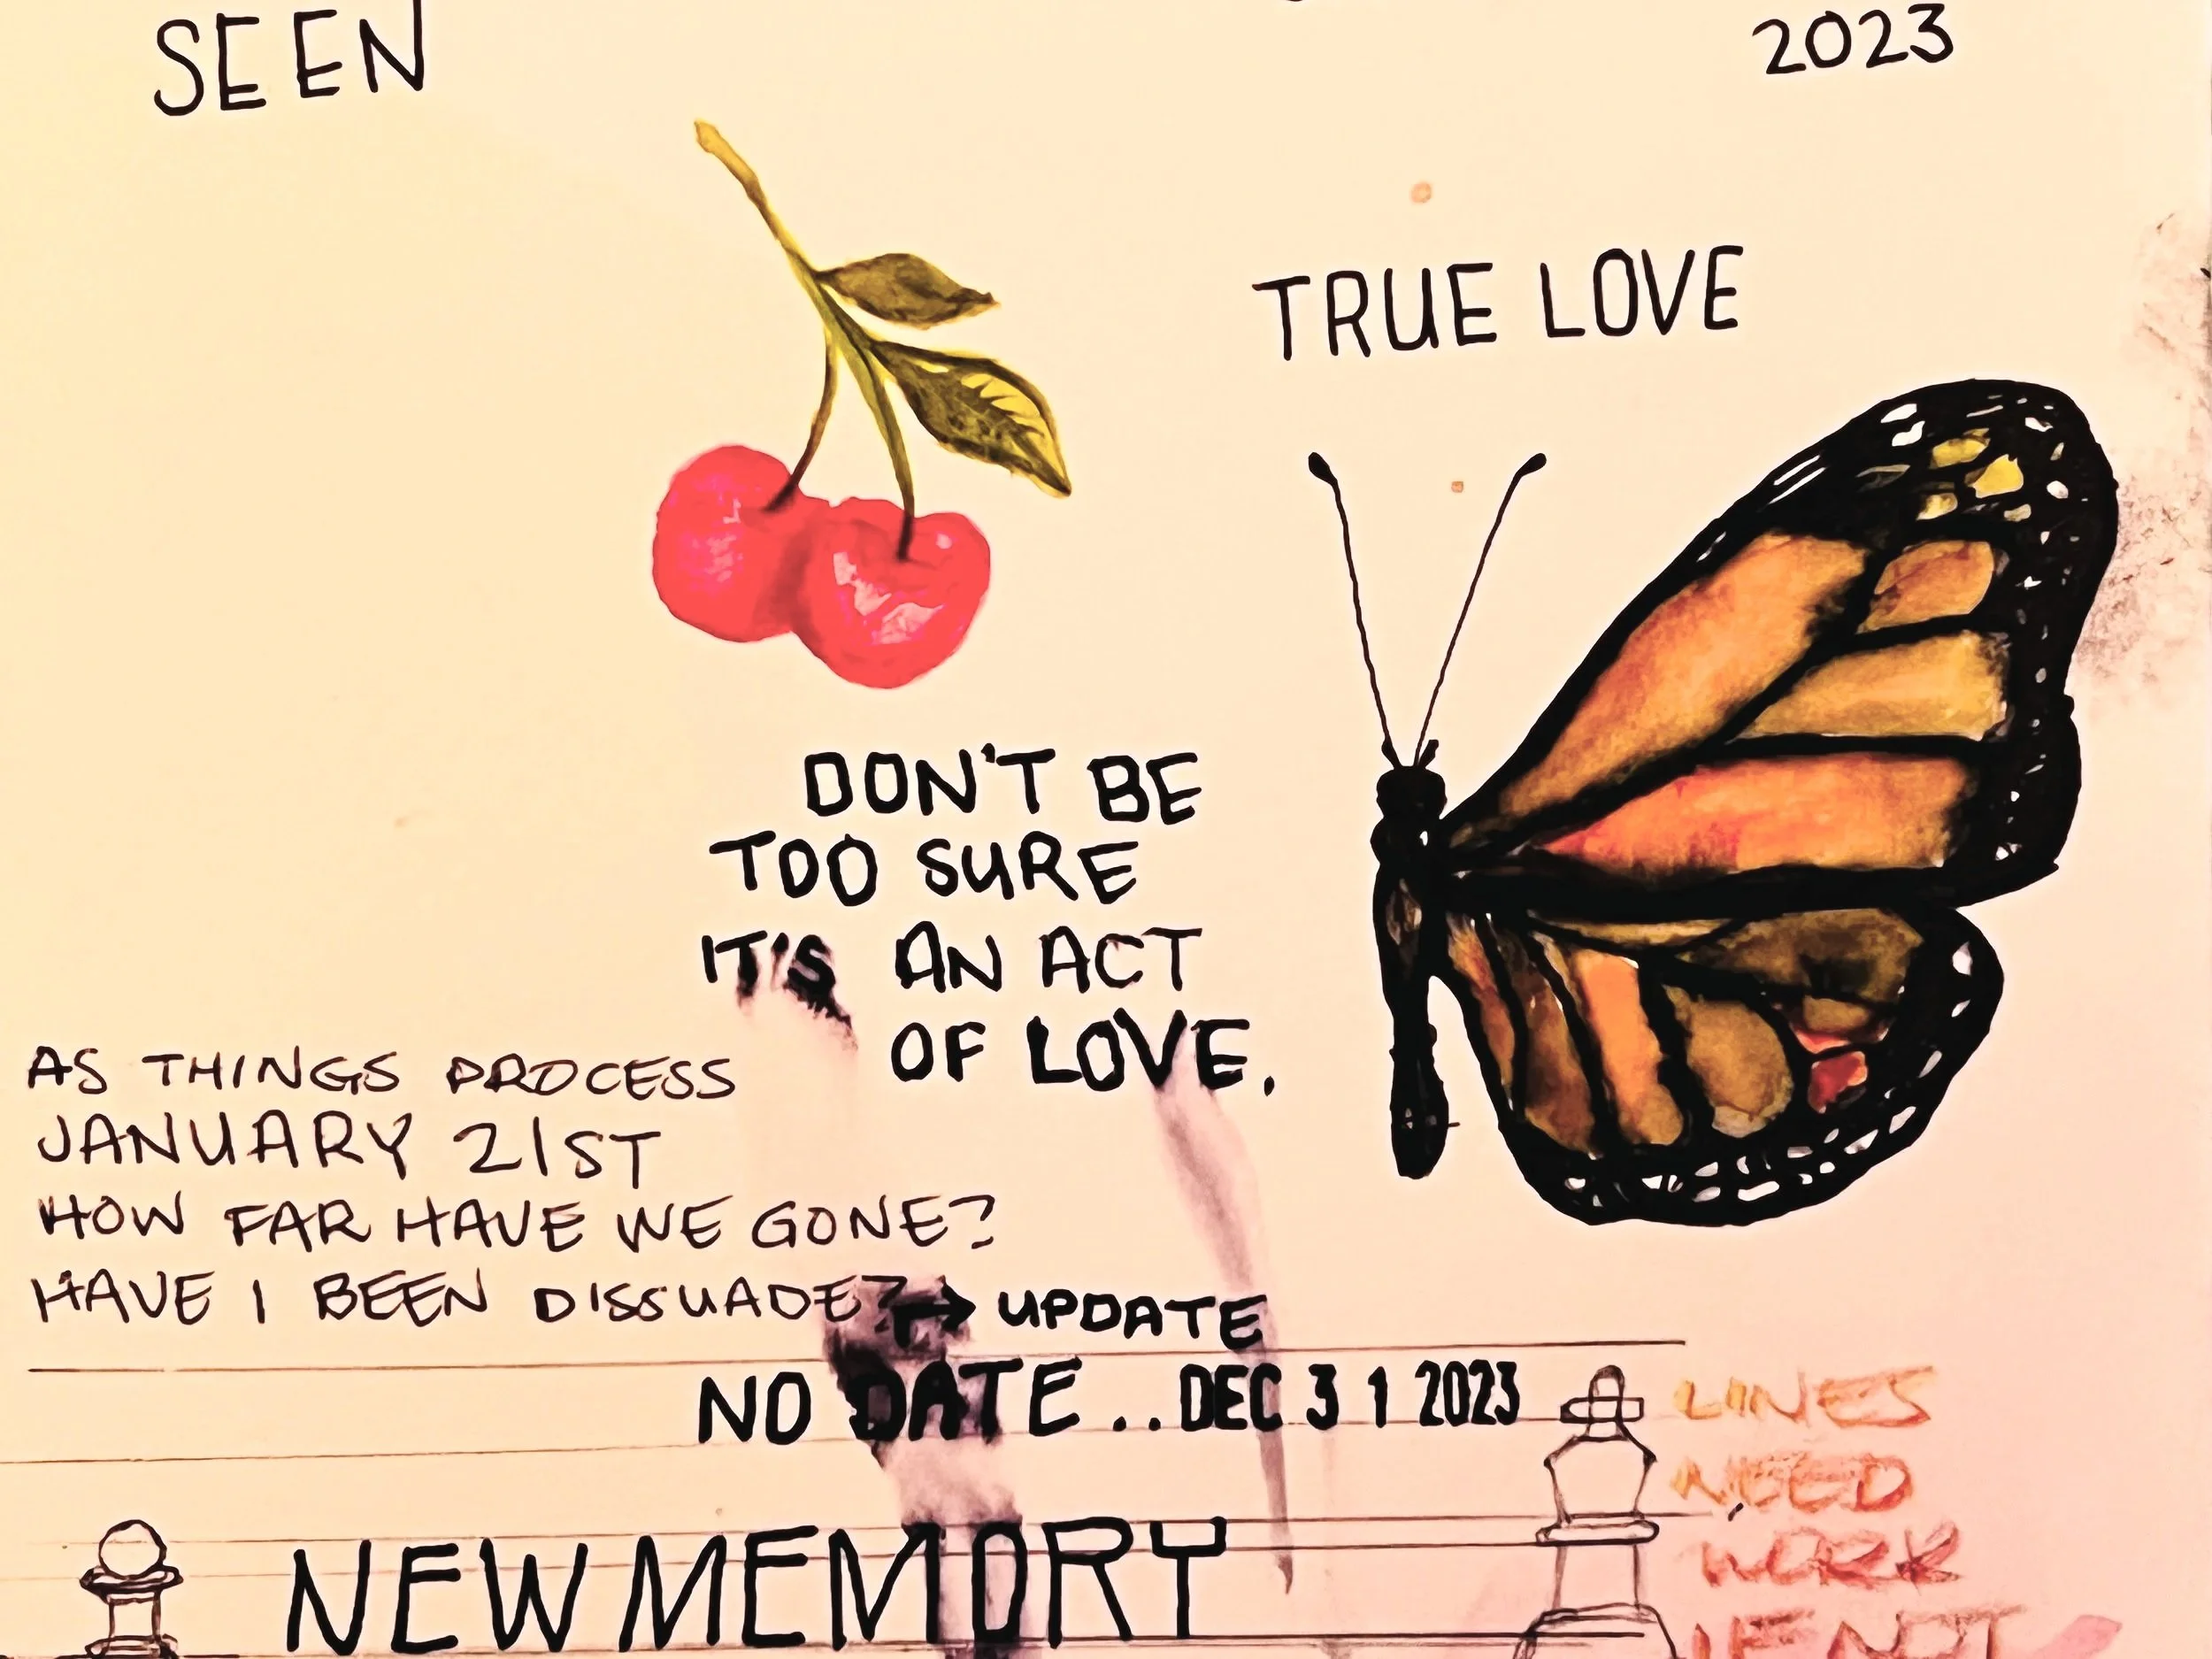 SEEN
2023
TRUE LOVE
DON'T BE
TOO SURE
IT'S AN ACT
OF LOVE.
AS THINGS PROCESS
JANUARY 21ST
HOW FAR HAVE WE GONE?
HAVE I BEEN DISSUADE? → UPDATE
NO DATE.. DEC 31 2023
NEW MEMORY
LINES
NEED
WORK
IF NOT